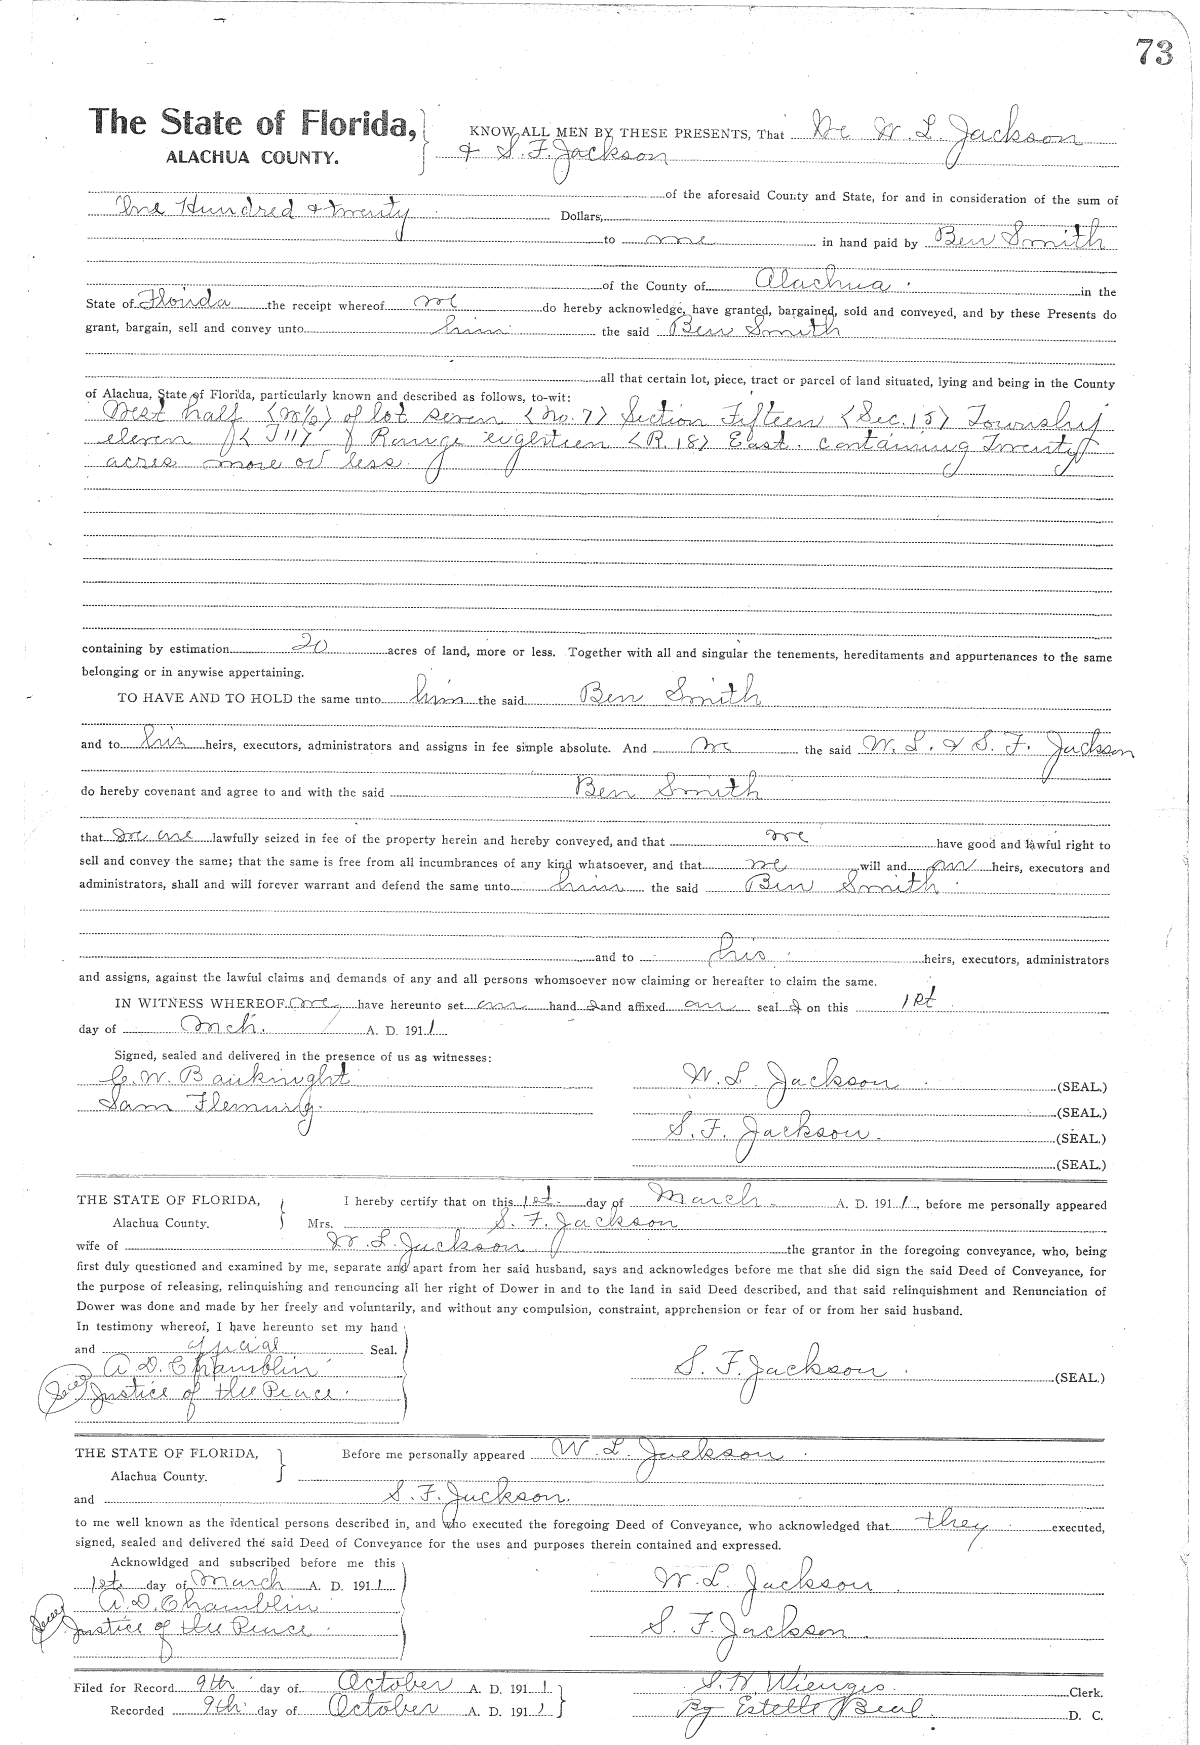 73
The State of Florida,
ALACHUA COUNTY.
KNOW ALL MEN BY THESE PRESENTS, That We W. L. Jackson
& S. F. Jackson
of the aforesaid County and State, for and in consideration of the sum of
One Hundred & twenty Dollars,
to me in hand paid by Ben Smith
of the County of Alachua in the
State of Florida the receipt whereof we do hereby acknowledge, have granted, bargained, sold and conveyed, and by these Presents do
grant, bargain, sell and convey unto him the said Ben Smith
all that certain lot, piece, tract or parcel of land situated, lying and being in the County
of Alachua, State of Florida, particularly known and described as follows, to-wit:
West half (W½) of lot seven (No. 7) Section Fifteen (Sec. 15) Township
eleven (T 11) Range eighteen (R. 18) East. containing Twenty
acres more or less.
containing by estimation 20 acres of land, more or less. Together with all and singular the tenements, hereditaments and appurtenances to the same
belonging or in anywise appertaining.
TO HAVE AND TO HOLD the same unto him the said Ben Smith
and to his heirs, executors, administrators and assigns in fee simple absolute. And we the said W. L. & S. F. Jackson
do hereby covenant and agree to and with the said Ben Smith
that we are lawfully seized in fee of the property herein and hereby conveyed, and that we have good and lawful right to
sell and convey the same; that the same is free from all incumbrances of any kind whatsoever, and that we will and our heirs, executors and
administrators, shall and will forever warrant and defend the same unto him the said Ben Smith
and to his heirs, executors, administrators
and assigns, against the lawful claims and demands of any and all persons whomsoever now claiming or hereafter to claim the same.
IN WITNESS WHEREOF, we have hereunto set our hand s and affixed our seal s on this 1st
day of Mch. A. D. 1911
Signed, sealed and delivered in the presence of us as witnesses:
C. W. Bauknight
Sam Fleming.
W. L. Jackson (SEAL.)
(SEAL.)
S. F. Jackson. (SEAL.)
(SEAL.)
THE STATE OF FLORIDA,
Alachua County.
I hereby certify that on this 1st day of March A. D. 1911, before me personally appeared
Mrs. S. F. Jackson
wife of W. L. Jackson the grantor in the foregoing conveyance, who, being
first duly questioned and examined by me, separate and apart from her said husband, says and acknowledges before me that she did sign the said Deed of Conveyance, for
the purpose of releasing, relinquishing and renouncing all her right of Dower in and to the land in said Deed described, and that said relinquishment and Renunciation of
Dower was done and made by her freely and voluntarily, and without any compulsion, constraint, apprehension or fear of or from her said husband.
In testimony whereof, I have hereunto set my hand
and official Seal.
A. D. Chamblin
Justice of the Peace.
S. F. Jackson (SEAL.)
THE STATE OF FLORIDA,
Alachua County.
Before me personally appeared W. L. Jackson
and S. F. Jackson.
to me well known as the identical persons described in, and who executed the foregoing Deed of Conveyance, who acknowledged that they executed,
signed, sealed and delivered the said Deed of Conveyance for the uses and purposes therein contained and expressed.
Acknowldged and subscribed before me this
1st day of March A. D. 1911
A. D. Chamblin
Justice of the Peace
W. L. Jackson
S. F. Jackson
Filed for Record 9th day of October A. D. 1911
Recorded 9th day of October A. D. 1911
S. H. Wienges Clerk.
By Estelle Beal D. C.